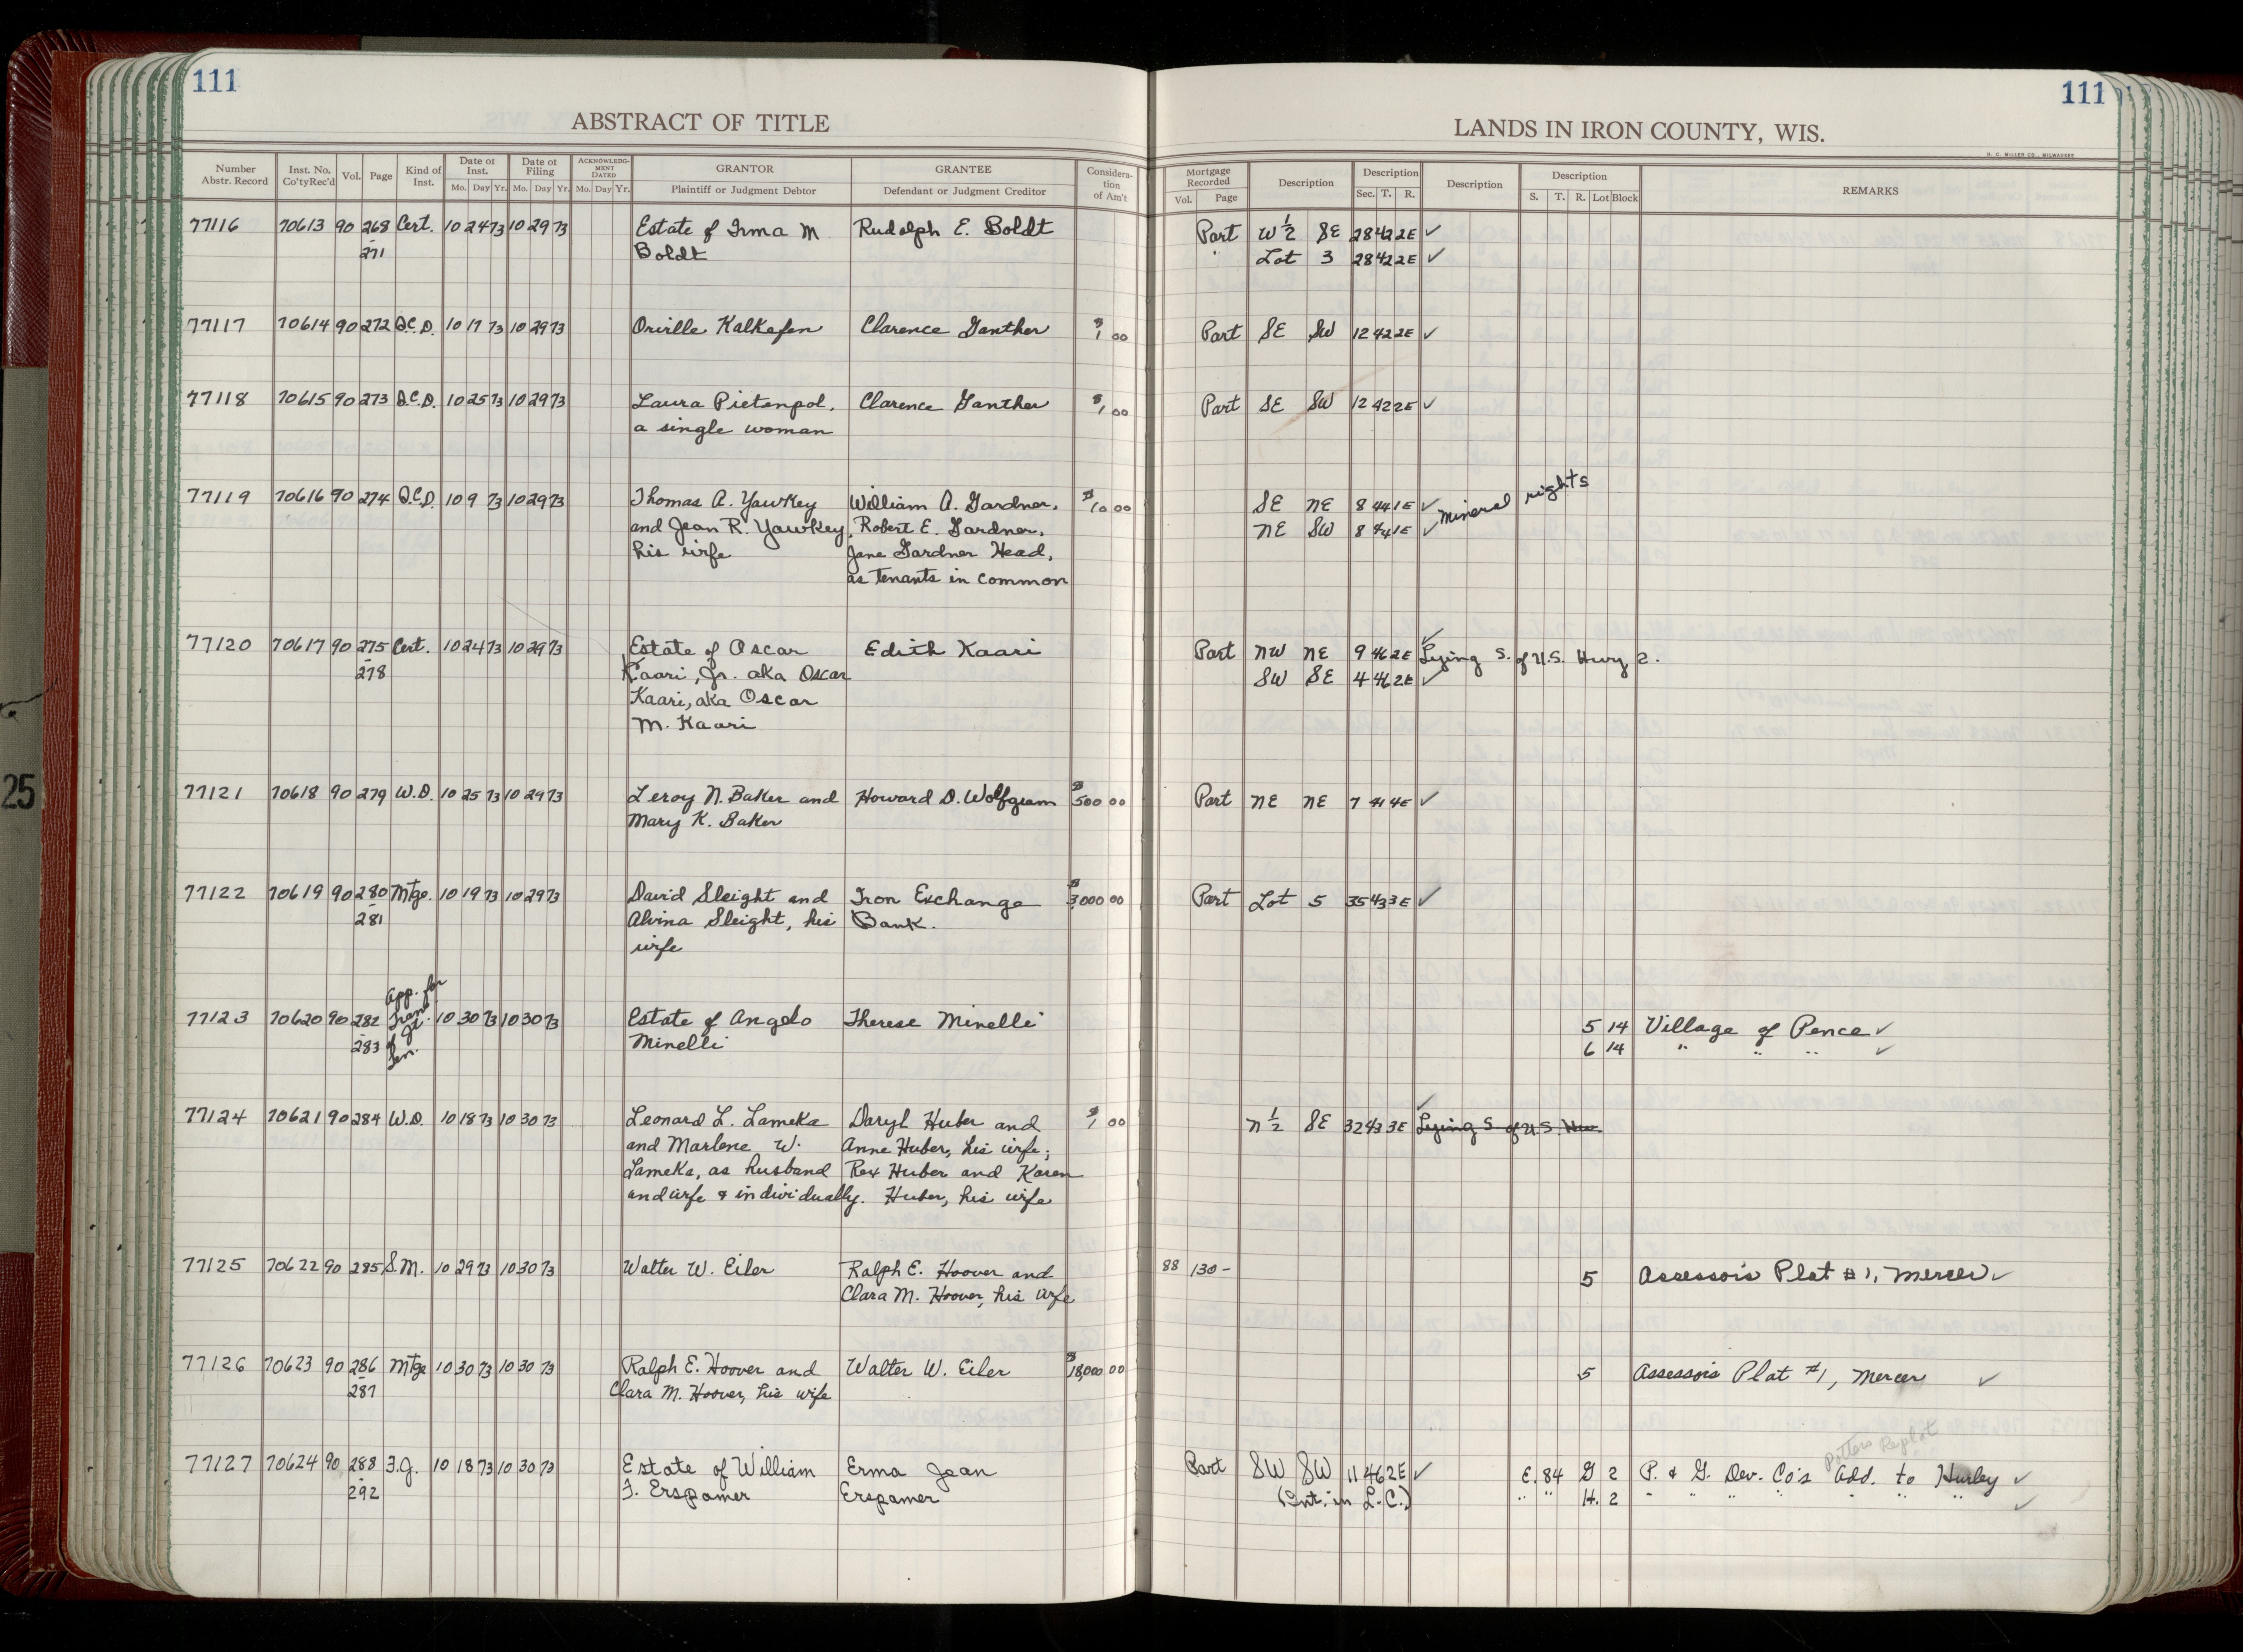 111
111
ABSTRACT OF TITLE
LANDS IN IRON COUNTY, WIS.
H. C. MILLER CO., MILWAUKEE
Number Abstr. Record | Inst. No. Co'ty Rec'd | Vol. | Page | Kind of Inst. | Date of Inst. Mo. Day Yr. | Date of Filing Mo. Day Yr. | ACKNOWLEDGMENT DATED Mo. Day Yr. | GRANTOR Plaintiff or Judgment Debtor | GRANTEE Defendant or Judgment Creditor | Consideration of Am't | Mortgage Recorded Vol. Page | Description | Description Sec. T. R. | Description | Description S. T. R. Lot Block | REMARKS
77116 70613 90 268 Cert. 10 24 73 10 29 73 Estate of Irma M Rudolph E. Boldt Part W 1/2 SE 28 42 2E ✓
- 271 Boldt " Lot 3 28 42 2E ✓
77117 70614 90 272 Q.C.D. 10 17 73 10 29 73 Orville Kalkofen Clarence Ganther $1 00 Part SE SW 12 42 2E ✓
77118 70615 90 273 Q.C.D. 10 25 73 10 29 73 Laura Pietenpol, Clarence Ganther $1 00 Part SE SW 12 42 2E ✓
a single woman
77119 70616 90 274 Q.C.D. 10 9 73 10 29 73 Thomas A. Yawkey William A. Gardner, $10 00 SE NE 8 44 1E ✓ Mineral rights
and Jean R. Yawkey, Robert E. Gardner, NE SW 8 44 1E ✓
his wife Jane Gardner Head,
as tenants in common
77120 70617 90 275 Cert. 10 24 73 10 29 73 Estate of Oscar Edith Kaari Part NW NE 9 46 2E ✓ Lying S. of U.S. Hwy 2.
- 278 Kaari, Jr. aka Oscar SW SE 4 46 2E ✓
Kaari, aka Oscar
M. Kaari
77121 70618 90 279 W.D. 10 25 73 10 29 73 Leroy N. Baker and Howard D. Wolfgram $500 00 Part NE NE 7 41 4E ✓
Mary K. Baker
77122 70619 90 280 Mtge. 10 19 73 10 29 73 David Sleight and Iron Exchange $3,000 00 Part Lot 5 35 43 3E ✓
- 281 Alvina Sleight, his Bank.
wife
77123 70620 90 282 App. for Tran. of Jt. Ten. 10 30 73 10 30 73 Estate of Angelo Therese Minelli 5 14 Village of Pence ✓
- 283 Minelli 6 14 " " " ✓
77124 70621 90 284 W.D. 10 18 73 10 30 73 Leonard L. Lameka Daryl Huber and $1 00 N 1/2 SE 32 43 3E ✓ Lying S of U.S. Hw
and Marlene W. Anne Huber, his wife;
Lameka, as husband Rex Huber and Karen
and wife & individually. Huber, his wife
77125 70622 90 285 S.M. 10 29 73 10 30 73 Walter W. Eiler Ralph E. Hoover and 88 130 - 5 Assessor's Plat #1, Mercer ✓
Clara M. Hoover, his wife
77126 70623 90 286 Mtge 10 30 73 10 30 73 Ralph E. Hoover and Walter W. Eiler $18,000 00 5 Assessor's Plat #1, Mercer ✓
- 287 Clara M. Hoover, his wife
Potters Replat
77127 70624 90 288 F.J. 10 18 73 10 30 73 Estate of William Erma Jean Part SW SW 11 46 2E ✓ E. 84 G 2 P. & G. Dev. Co's Add. to Hurley ✓
- 292 F. Erspamer Erspamer (Int. in L.C.) " " H. 2 " " " " " " " ✓
25